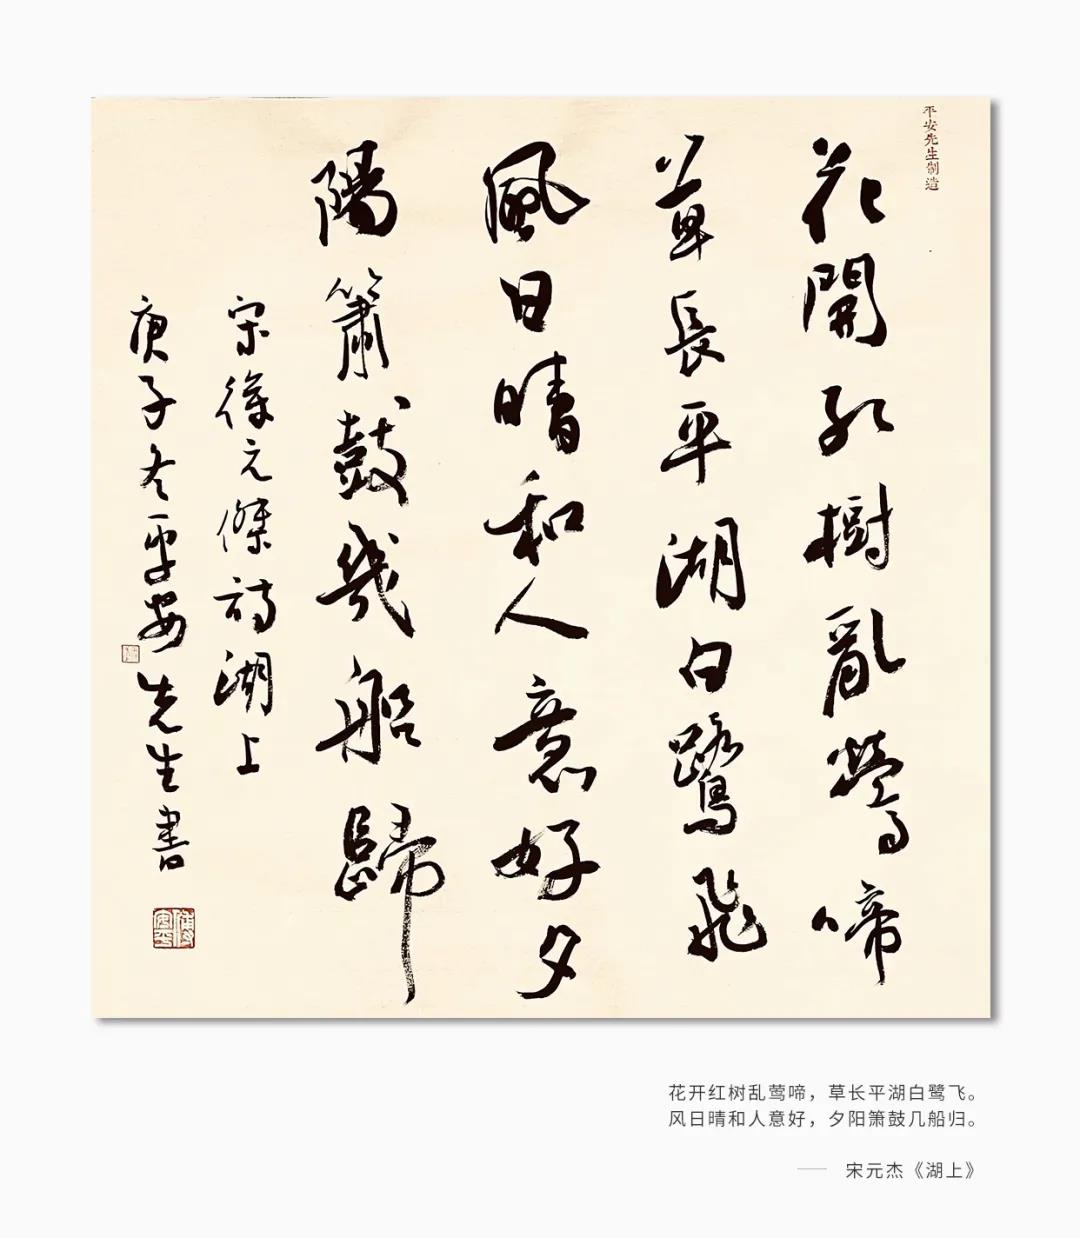 平安先生制造
花開红樹亂鶯啼
草長平湖白鷺飛
風日晴和人意好夕
陽簫鼓幾船歸
宋徐元傑詩湖上
庚子冬平安先生書
花开红树乱莺啼，草长平湖白鹭飞。
风日晴和人意好，夕阳箫鼓几船归。
—— 宋元杰《湖上》